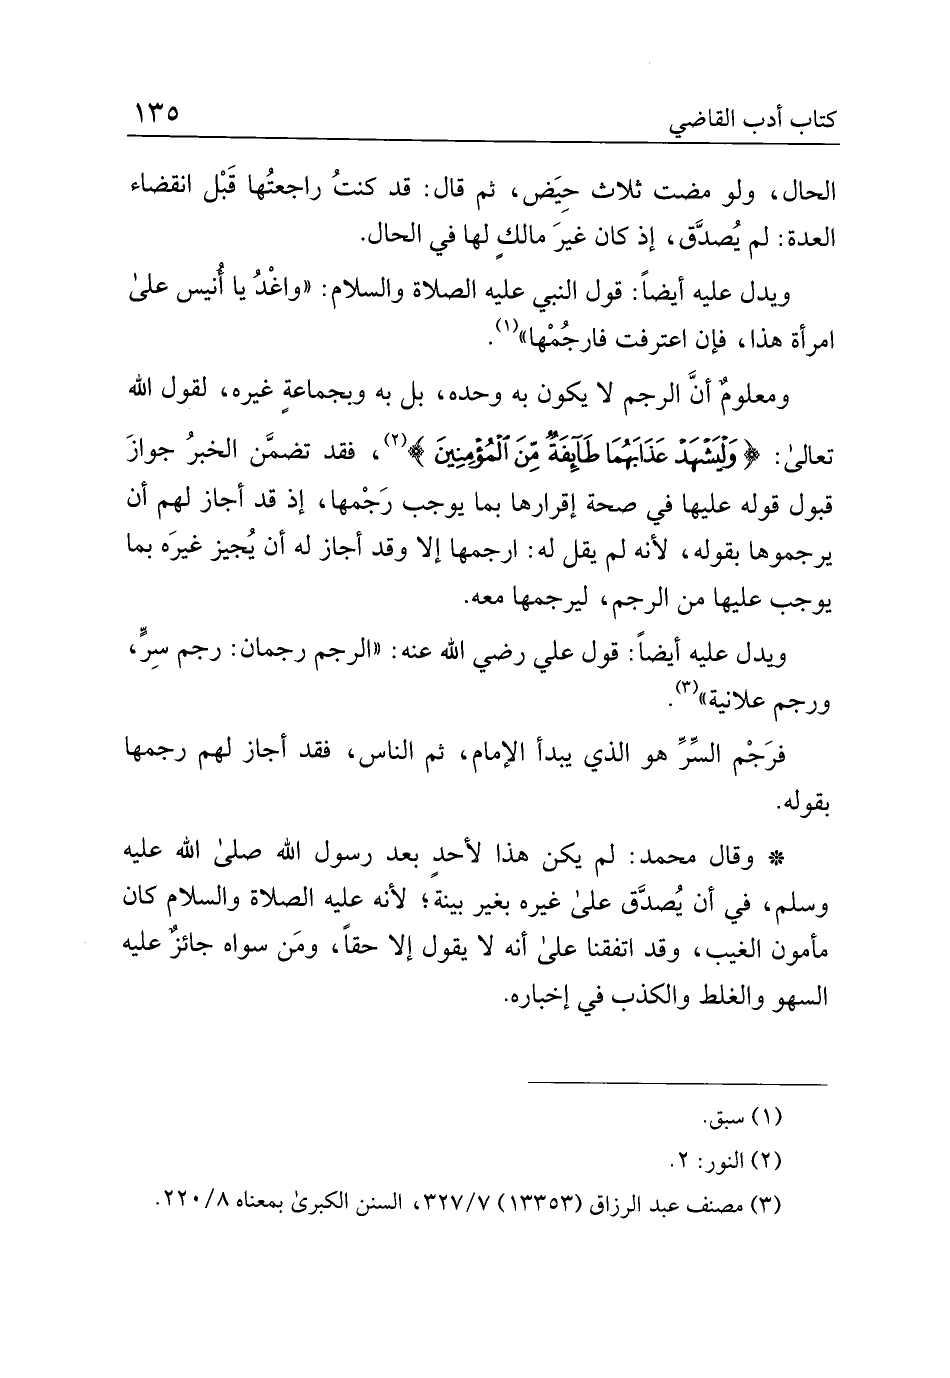 كتاب أدب القاضي ١٣٥
الحال، ولو مضت ثلاث حِيَض، ثم قال: قد كنتُ راجعتُها قَبْل انقضاء
العدة: لم يُصدَّق، إذ كان غيرَ مالكٍ لها في الحال.
ويدل عليه أيضاً: قول النبي عليه الصلاة والسلام: «واغْدُ يا أُنيس علىٰ
امرأة هذا، فإن اعترفت فارجُمْها»(١).
ومعلومٌ أنَّ الرجم لا يكون به وحده، بل به وبجماعةٍ غيره، لقول الله
تعالىٰ: ﴿وَلْيَشْهَدْ عَذَابَهُمَا طَآئِفَةٌ مِّنَ ٱلْمُؤْمِنِينَ﴾(٢)، فقد تضمَّن الخبرُ جوازَ
قبول قوله عليها في صحة إقرارها بما يوجب رَجْمها، إذ قد أجاز لهم أن
يرجموها بقوله، لأنه لم يقل له: ارجمها إلا وقد أجاز له أن يُجيز غيرَه بما
يوجب عليها من الرجم، ليرجمها معه.
ويدل عليه أيضاً: قول علي رضي الله عنه: «الرجم رجمان: رجم سِرٍّ،
ورجم علانية»(٣).
فرَجْم السِّرِّ هو الذي يبدأ الإمام، ثم الناس، فقد أجاز لهم رجمها
بقوله.
* وقال محمد: لم يكن هذا لأحدٍ بعد رسول الله صلىٰ الله عليه
وسلم، في أن يُصدَّق علىٰ غيره بغير بينة؛ لأنه عليه الصلاة والسلام كان
مأمون الغيب، وقد اتفقنا علىٰ أنه لا يقول إلا حقاً، ومَن سواه جائزٌ عليه
السهو والغلط والكذب في إخباره.
(١) سبق.
(٢) النور: ٢.
(٣) مصنف عبد الرزاق (١٣٣٥٣) ٣٢٧/٧، السنن الكبرىٰ بمعناه ٢٢٠/٨.